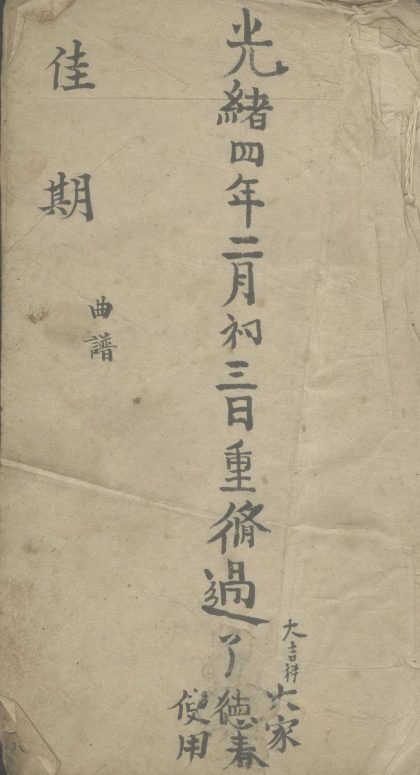 光緒四年二月初三日重脩過了
大吉祥
大家
德春
使用
佳期
曲譜